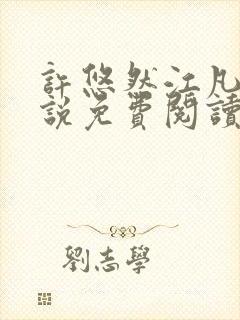 許悠然江凡
說免費閱讀
劉志學